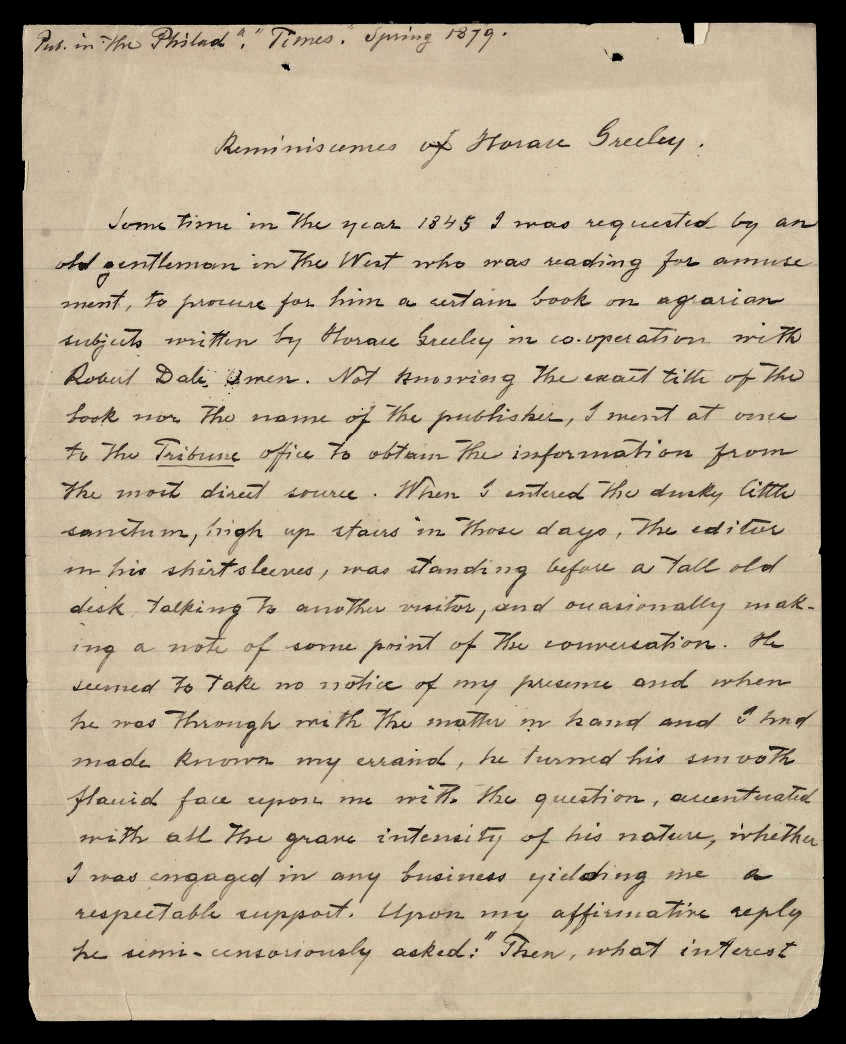 Pub. in the Philad". "Times." Spring 1879.
Reminiscences of Horace Greeley.
Some time in the year 1845 I was requested by an
old gentleman in the West who was reading for amuse
ment, to procure for him a certain book on agrarian
subjects written by Horace Greeley in co-operation with
Robert Dale Owen. Not knowing the exact title of the
book nor the name of the publisher, I went at once
to the Tribune office to obtain the information from
the most direct source. When I entered the dusky little
sanctum, high up stairs in those days, the editor
in his shirtsleeves, was standing before a tall old
desk talking to another visitor, and occasionally mak-
ing a note of some point of the conversation. He
seemed to take no notice of my presence and when
he was through with the matter in hand and I had
made known my errand, he turned his smooth
flaccid face upon me with the question, accentuated
with all the grave intensity of his nature, whether
I was engaged in any business yielding me a
respectable support. Upon my affirmative reply
he semi-censoriously asked: "Then, what interest